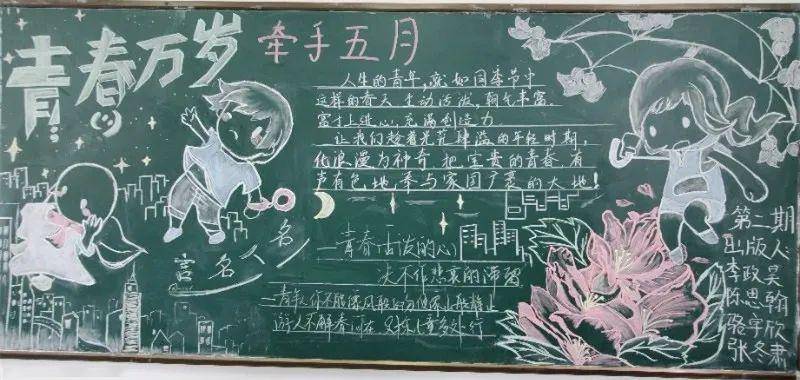 青春万岁
牵手五月
人生的青年,就如同季节中
这样的春天 生动活泼,朝气丰富,
富于上进心,充满创造力
让我们趁着光茫肆溢的年轻时期,
化浪漫为神奇 把宝贵的青春,有
声有色地,奉与家国广袤的大地!
名人名言
青春活泼的心
决不作悲哀的滞留
游人不解春何在 只拣儿童多处行
第二期
出版人:
吴
李政翰
陈思欣
骆宇肃
张冬